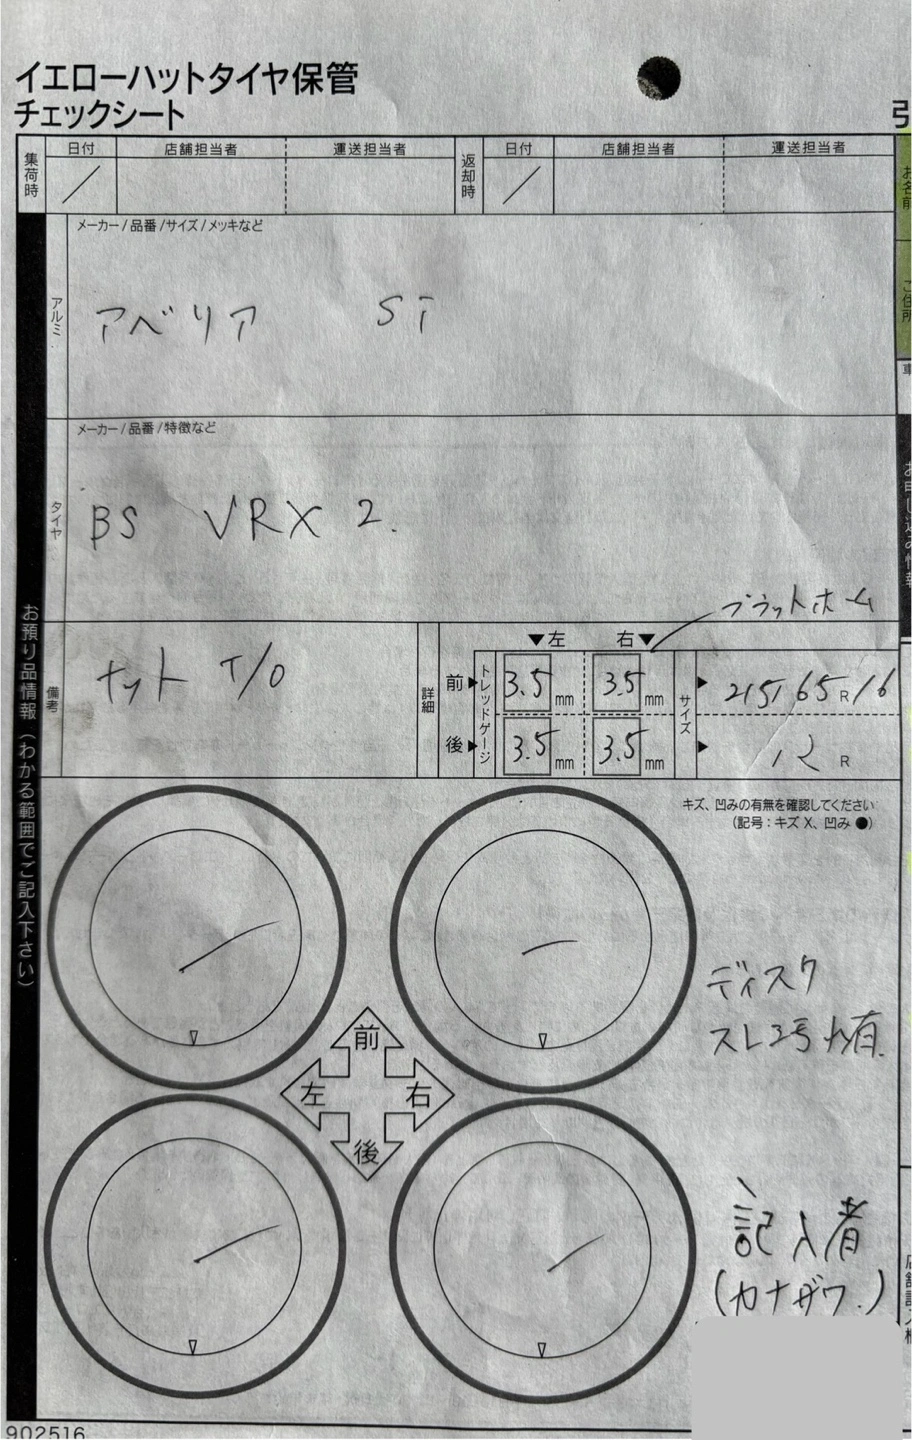 イエローハットタイヤ保管
チェックシート
引
集荷時 日付 店舗担当者 運送担当者 返却時 日付 店舗担当者 運送担当者
/ /
お名前
ご住所
車
メーカー/品番/サイズ/メッキなど
アルミ
アベリア ST
メーカー/品番/特徴など
タイヤ
BS VRX 2.
お預り品情報(わかる範囲でご記入下さい)
お申し込み情報
プラットホーム
備考
ナット T/O
詳細
▼左 右▼
トレッドゲージ
前▶ 3.5 mm 3.5 mm
後▶ 3.5 mm 3.5 mm
サイズ
▶ 215/65 R/16
▶ R
キズ、凹みの有無を確認してください
(記号:キズ X、凹み ●)
ディスク
前
左 右
後
記入者
(カナザワ.)
902516